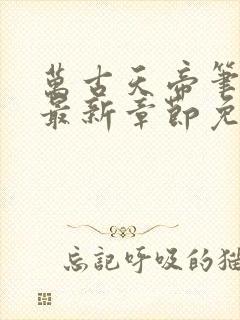 萬古天帝筆
最新章節免
忘記呼吸的猫